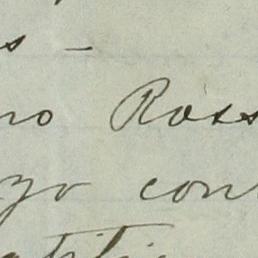 s –
no Ross
zo con